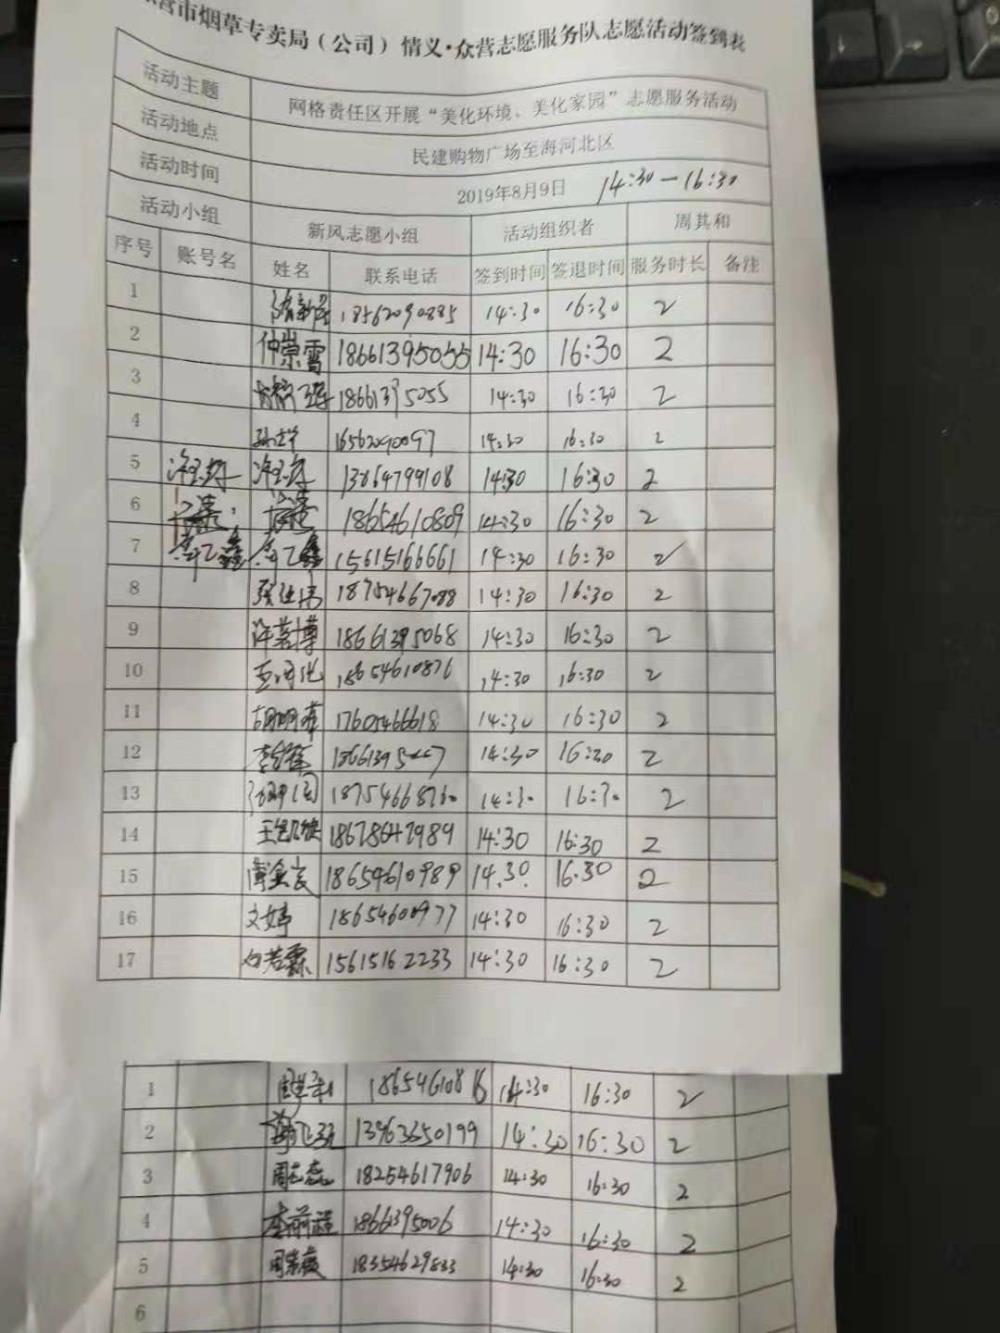 营市烟草专卖局（公司）情义·众营志愿服务队志愿活动签到表
活动主题 网格责任区开展“美化环境、美化家园”志愿服务活动
活动地点 民建购物广场至海河北区
活动时间 2019年8月9日 14:30—16:30
活动小组 新风志愿小组 活动组织者 周其和
序号 账号名 姓名 联系电话 签到时间 签退时间 服务时长 备注
1 18562090885 14:30 16:30 2
2 仲崇雪 18661395055 14:30 16:30 2
3 18661395055 14:30 16:30 2
4 16562090097 14:30 16:30 2
5 13864799108 14:30 16:30 2
6 18654610809 14:30 16:30 2
7 15615166661 14:30 16:30 2
8 18754667088 14:30 16:30 2
9 许茗博 18661395068 14:30 16:30 2
10 18654610876 14:30 16:30 2
11 胡明菲 17605466618 14:30 16:30 2
12 14:30 16:30 2
13 18754668760 14:30 16:30 2
14 18678647989 14:30 16:30 2
15 18654610989 14:30 16:30 2
16 文婷 18654600977 14:30 16:30 2
17 白若霖 15615162233 14:30 16:30 2
1 18654610816 14:30 16:30 2
2 13963550199 14:30 16:30 2
3 18254617906 14:30 16:30 2
4 李前程 18661395006 14:30 16:30 2
5 18354629833 14:30 16:30 2
6